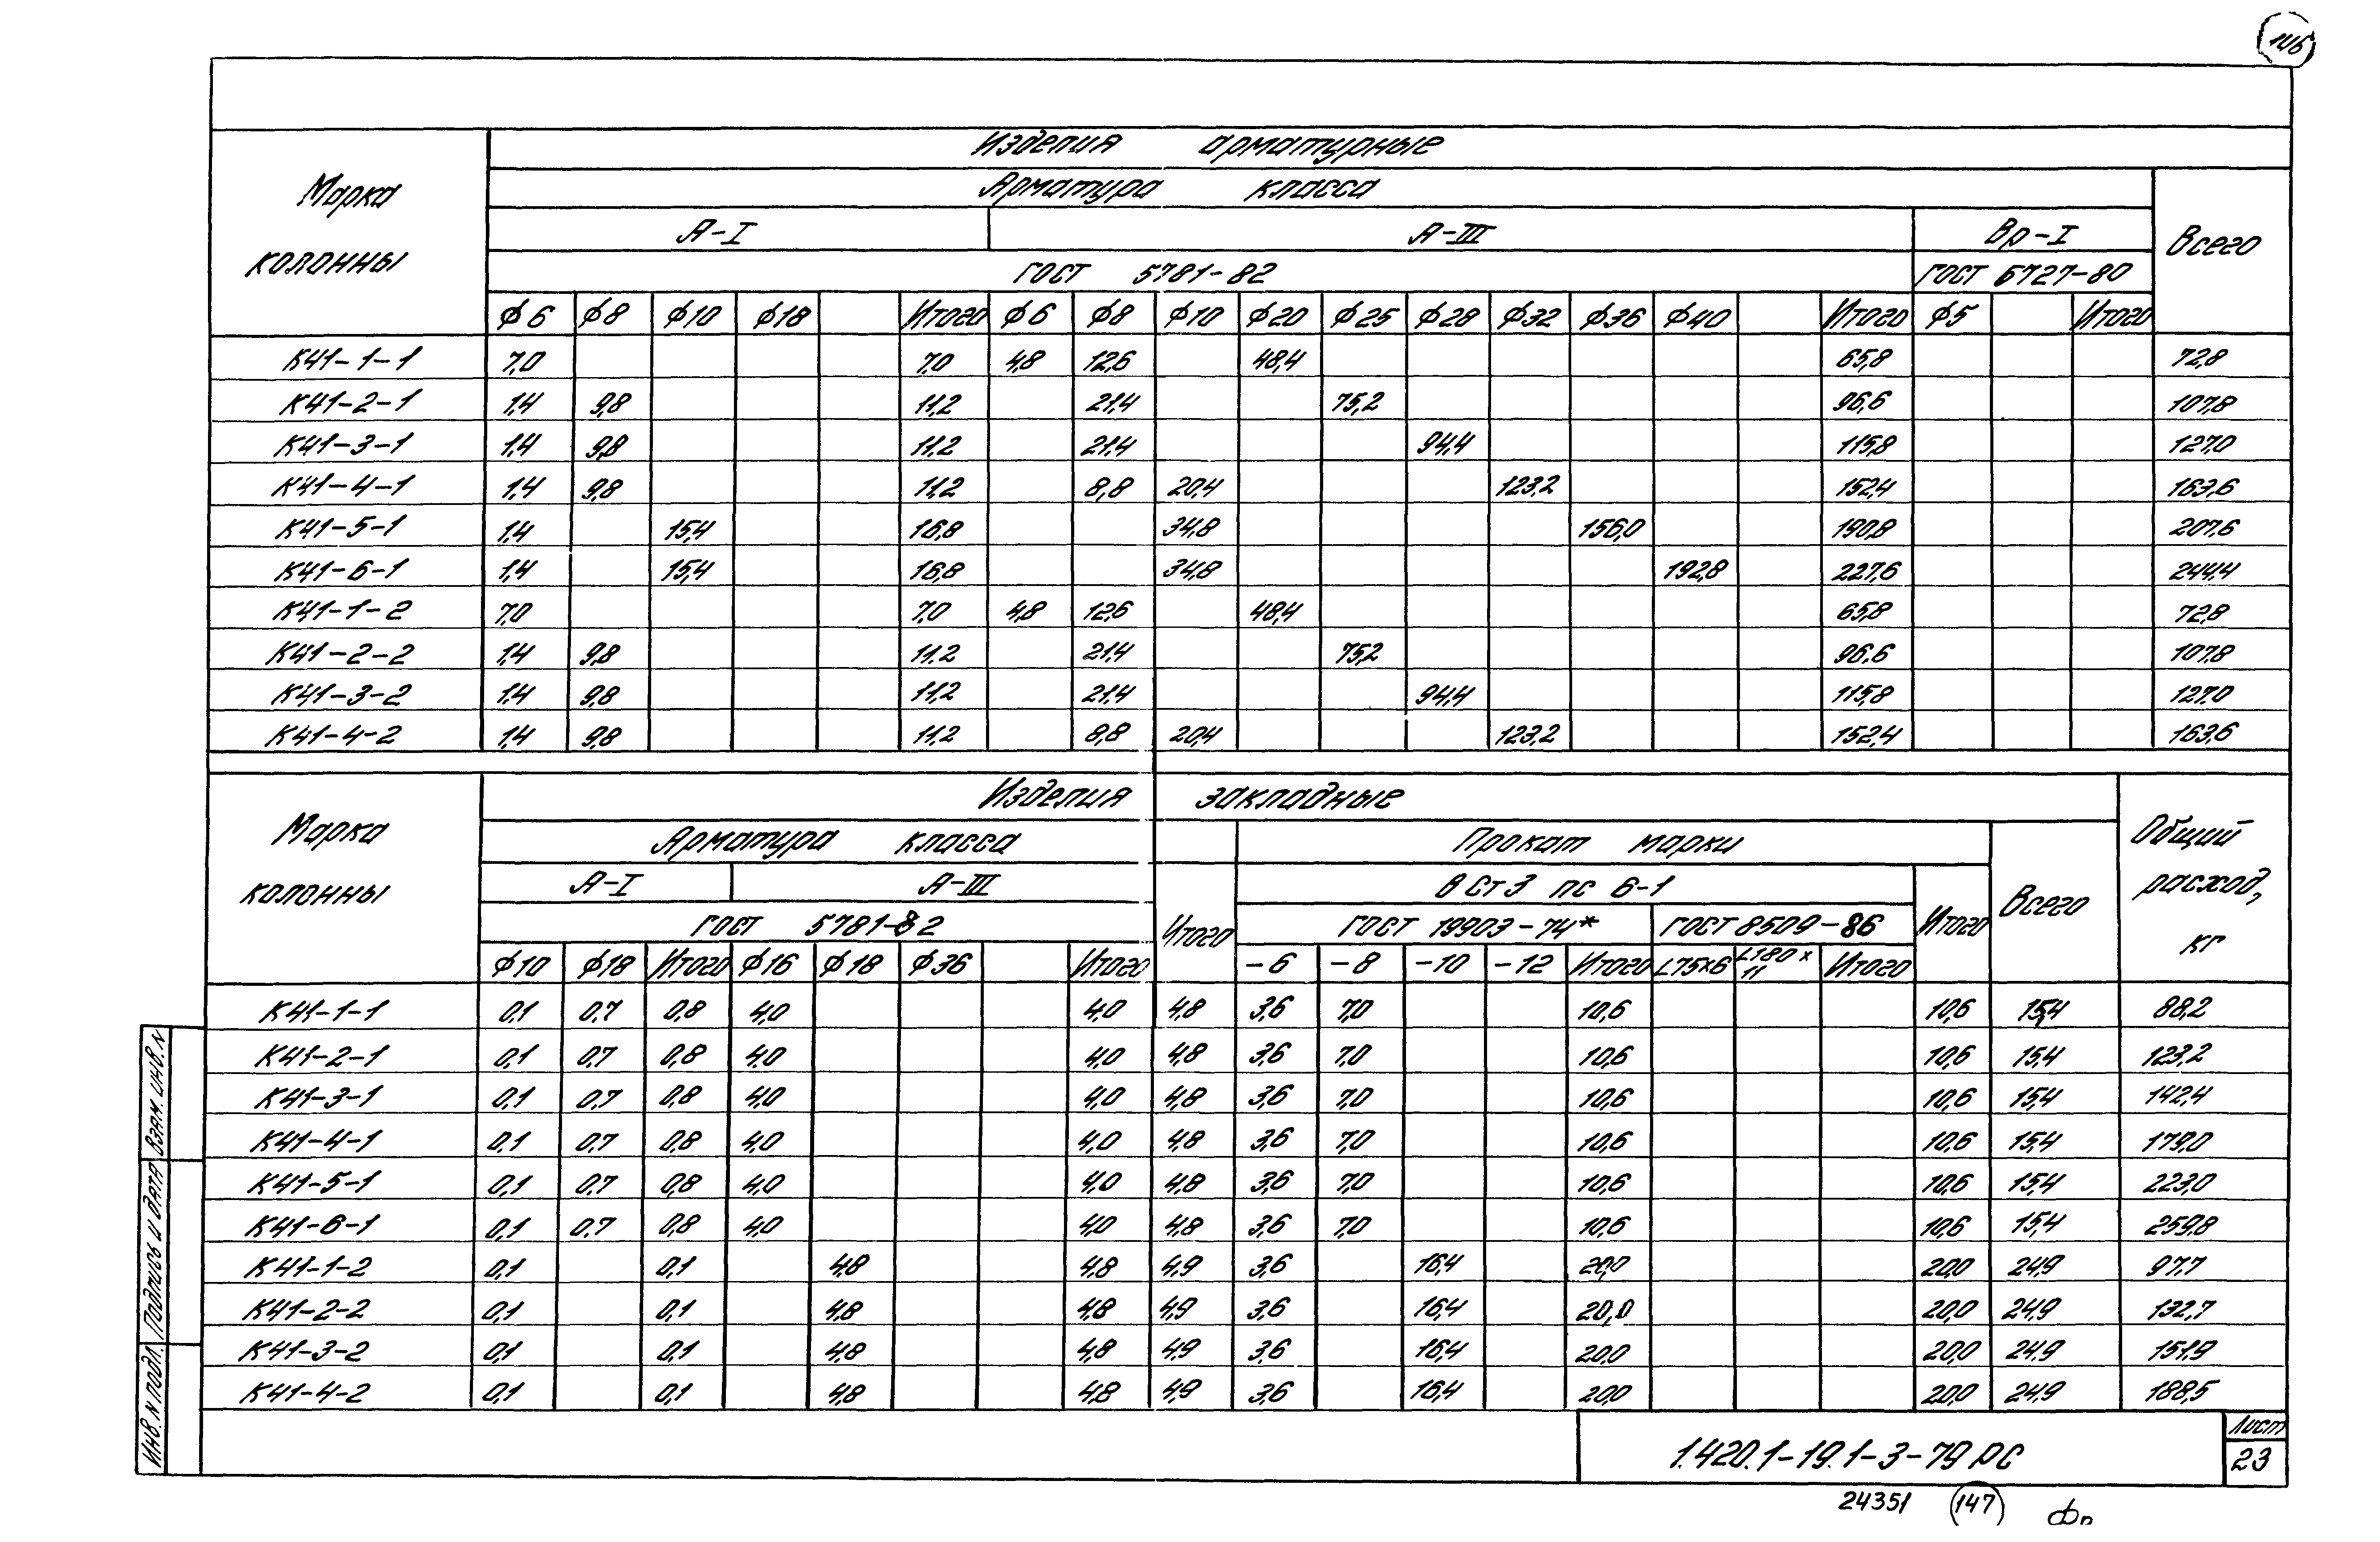 146
Изделия арматурные
Марка колонны
Арматура класса
Всего
А-I А-III Вр-I
ГОСТ 5781-82 ГОСТ 6727-80
ф6 ф8 ф10 ф18 Итого ф6 ф8 ф10 ф20 ф25 ф28 ф32 ф36 ф40 Итого ф5 Итого
К41-1-1 7,0 7,0 4,8 12,6 48,4 65,8 72,8
К41-2-1 1,4 9,8 11,2 21,4 75,2 96,6 107,8
К41-3-1 1,4 9,8 11,2 21,4 94,4 115,8 127,0
К41-4-1 1,4 9,8 11,2 8,8 20,4 123,2 152,4 163,6
К41-5-1 1,4 15,4 16,8 34,8 156,0 190,8 207,6
К41-6-1 1,4 15,4 16,8 34,8 192,8 227,6 244,4
К41-1-2 7,0 7,0 4,8 12,6 48,4 65,8 72,8
К41-2-2 1,4 9,8 11,2 21,4 75,2 96,6 107,8
К41-3-2 1,4 9,8 11,2 21,4 94,4 115,8 127,0
К41-4-2 1,4 9,8 11,2 8,8 20,4 123,2 152,4 163,6
Изделия закладные
Марка колонны
Общий расход, кг
Арматура класса Прокат марки
Итого Всего
А-I А-III В Ст 3 пс 6-1
Итого
ГОСТ 5781-82 ГОСТ 19903-74* ГОСТ 8509-86
ф10 ф18 Итого ф16 ф18 ф36 Итого -6 -8 -10 -12 Итого L75×6 L180×11 Итого
К41-1-1 0,1 0,7 0,8 4,0 4,0 4,8 3,6 7,0 10,6 10,6 15,4 88,2
К41-2-1 0,1 0,7 0,8 4,0 4,0 4,8 3,6 7,0 10,6 10,6 15,4 123,2
К41-3-1 0,1 0,7 0,8 4,0 4,0 4,8 3,6 7,0 10,6 10,6 15,4 142,4
К41-4-1 0,1 0,7 0,8 4,0 4,0 4,8 3,6 7,0 10,6 10,6 15,4 179,0
К41-5-1 0,1 0,7 0,8 4,0 4,0 4,8 3,6 7,0 10,6 10,6 15,4 223,0
К41-6-1 0,1 0,7 0,8 4,0 4,0 4,8 3,6 7,0 10,6 10,6 15,4 259,8
К41-1-2 0,1 0,1 4,8 4,8 4,9 3,6 16,4 20,0 20,0 24,9 97,7
К41-2-2 0,1 0,1 4,8 4,8 4,9 3,6 16,4 20,0 20,0 24,9 132,7
К41-3-2 0,1 0,1 4,8 4,8 4,9 3,6 16,4 20,0 20,0 24,9 151,9
К41-4-2 0,1 0,1 4,8 4,8 4,9 3,6 16,4 20,0 20,0 24,9 188,5
Взам. инв. N
Подпись и дата
Инв. N подл.
1.420.1-19.1-3-79 РС
Лист
23
24351 147 Фп